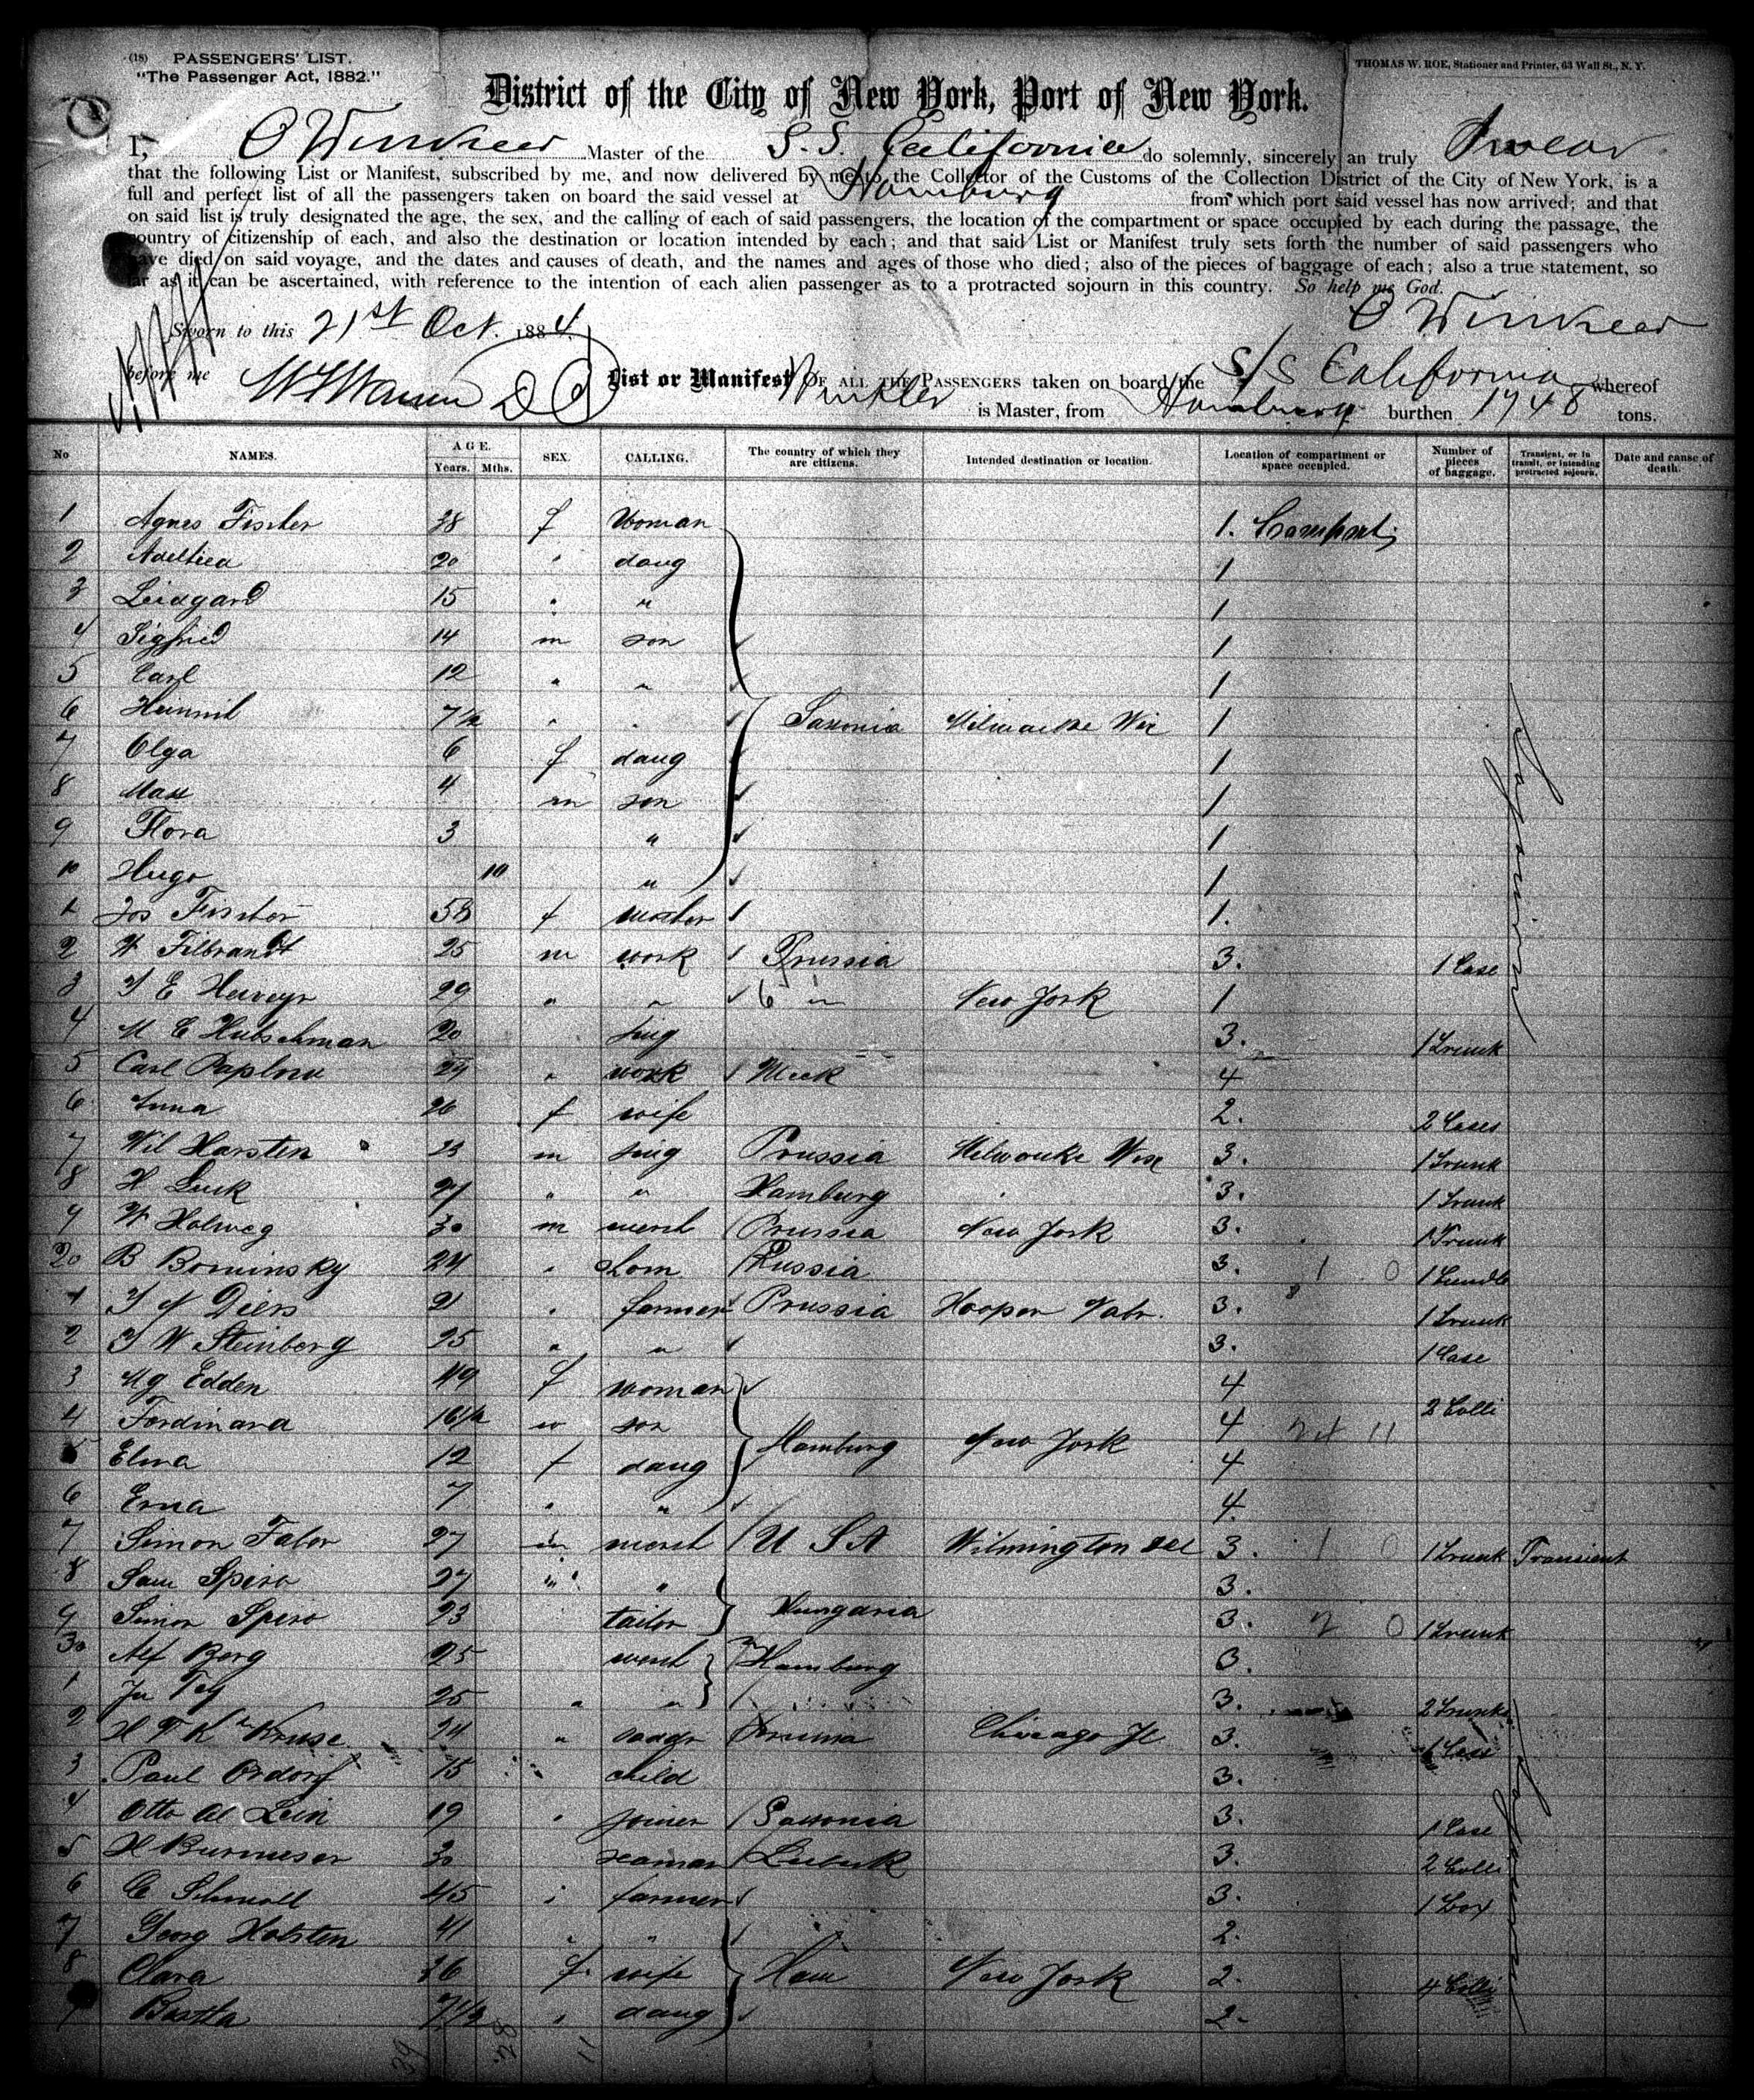 (18) PASSENGERS' LIST.
"The Passenger Act, 1882."
THOMAS W. ROE, Stationer and Printer, 63 Wall St., N. Y.
District of the City of New York, Port of New York.
I, Master of the S. S. California do solemnly, sincerely an truly Swear
that the following List or Manifest, subscribed by me, and now delivered by me to the Collector of the Customs of the Collection District of the City of New York, is a
full and perfect list of all the passengers taken on board the said vessel at Hamburg from which port said vessel has now arrived; and that
on said list is truly designated the age, the sex, and the calling of each of said passengers, the location of the compartment or space occupied by each during the passage, the
country of citizenship of each, and also the destination or location intended by each; and that said List or Manifest truly sets forth the number of said passengers who
have died on said voyage, and the dates and causes of death, and the names and ages of those who died; also of the pieces of baggage of each; also a true statement, so
far as it can be ascertained, with reference to the intention of each alien passenger as to a protracted sojourn in this country. So help me God.
Sworn to this 21st Oct. 1884
before me
List or Manifest OF ALL THE PASSENGERS taken on board the S/S California whereof
Winkler is Master, from Hamburg burthen 1748 tons.
No NAMES. AGE. Years. Mths. SEX. CALLING. The country of which they are citizens. Intended destination or location. Location of compartment or space occupied. Number of pieces of baggage. Transient, or in transit, or intending protracted sojourn. Date and cause of death.
1 Agnes Fischer 38 f Woman 1.
2 20 " daug 1
3 Leidgard 15 " " 1
4 Sigfried 14 m son 1
5 Carl 12 " " 1
6 7½ " " Saxonia 1
7 Olga 6 f daug 1
8 Max 4 m son 1
9 Flora 3 " 1
10 Hugo 10 " 1
1 Jos Fischer 58 f 1.
2 W Filbrandt 25 m work Prussia 3. 1 Case
3 29 " " New York 1
4 M E Hubschman 20 sing 3. 1 Trunk
5 Carl 29 " work Meck 4
6 Anna 26 f wife 2. 2 Cases
7 Wil Harsten 23 m sing Prussia Milwauke Wisc 3. 1 Trunk
8 H Luck 27 " " Hamburg 3. 1 Trunk
9 W Holweg 30 m merch Prussia New York 3. 1 Trunk
20 B Bominsky 24 " Russia 3. 1 0
1 Diers 21 " farmer Prussia Hooper Nabr. 3. 1 Trunk
2 W Steinberg 25 " " 3. 1 Case
3 Mg Edden 49 f woman 4
4 Ferdinand 16½ son 4 2 Colli
5 12 f daug Hamburg New York 4
6 Erna 7 " " 4.
7 Simon Fabor 27 m merch U S A Wilmington Del 3. 1 0 1 Trunk Transient
8 Sam Spiro 27 " " 3.
9 Simon Spiro 23 tailor Hungaria 3. 2 0 1 Trunk
30 Alf Berg 25 merch Hamburg 3.
1 25 " " 3. 2 Trunks
2 Kruse 24 " Chicago 3. 1 Case
3 Paul Ordorf 15 child 3.
4 Otto 19 " joiner Saxonia 3. 1 Case
5 H 30 seaman Lubeck 3. 2 Colli
6 C 45 farmer 3. 1 Box
7 Georg Holsten 41 " " 2.
8 Clara 36 f. wife Ham New York 2. 4 Colli
9 Bertha 7½ " daug 2.
39 28 11